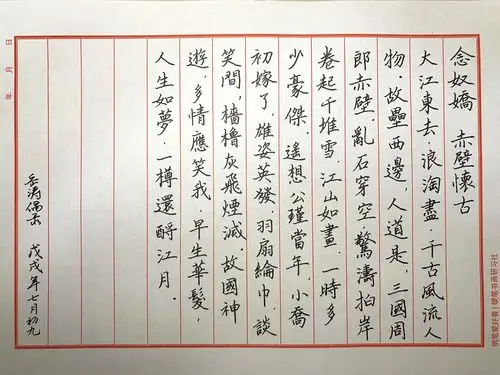 念奴嬌 赤壁懷古
大江東去，浪淘盡，千古風流人
物，故壘西邊，人道是，三國周
郎赤壁，亂石穿空，驚濤拍岸
卷起千堆雪，江山如畫，一時多
少豪傑，遙想公瑾當年，小喬
初嫁了，雄姿英發，羽扇綸巾，談
笑間，檣櫓灰飛煙滅，故國神
遊，多情應笑我，早生華髮，
人生如夢，一樽還酹江月。
戊戌年七月初九
年 月 日